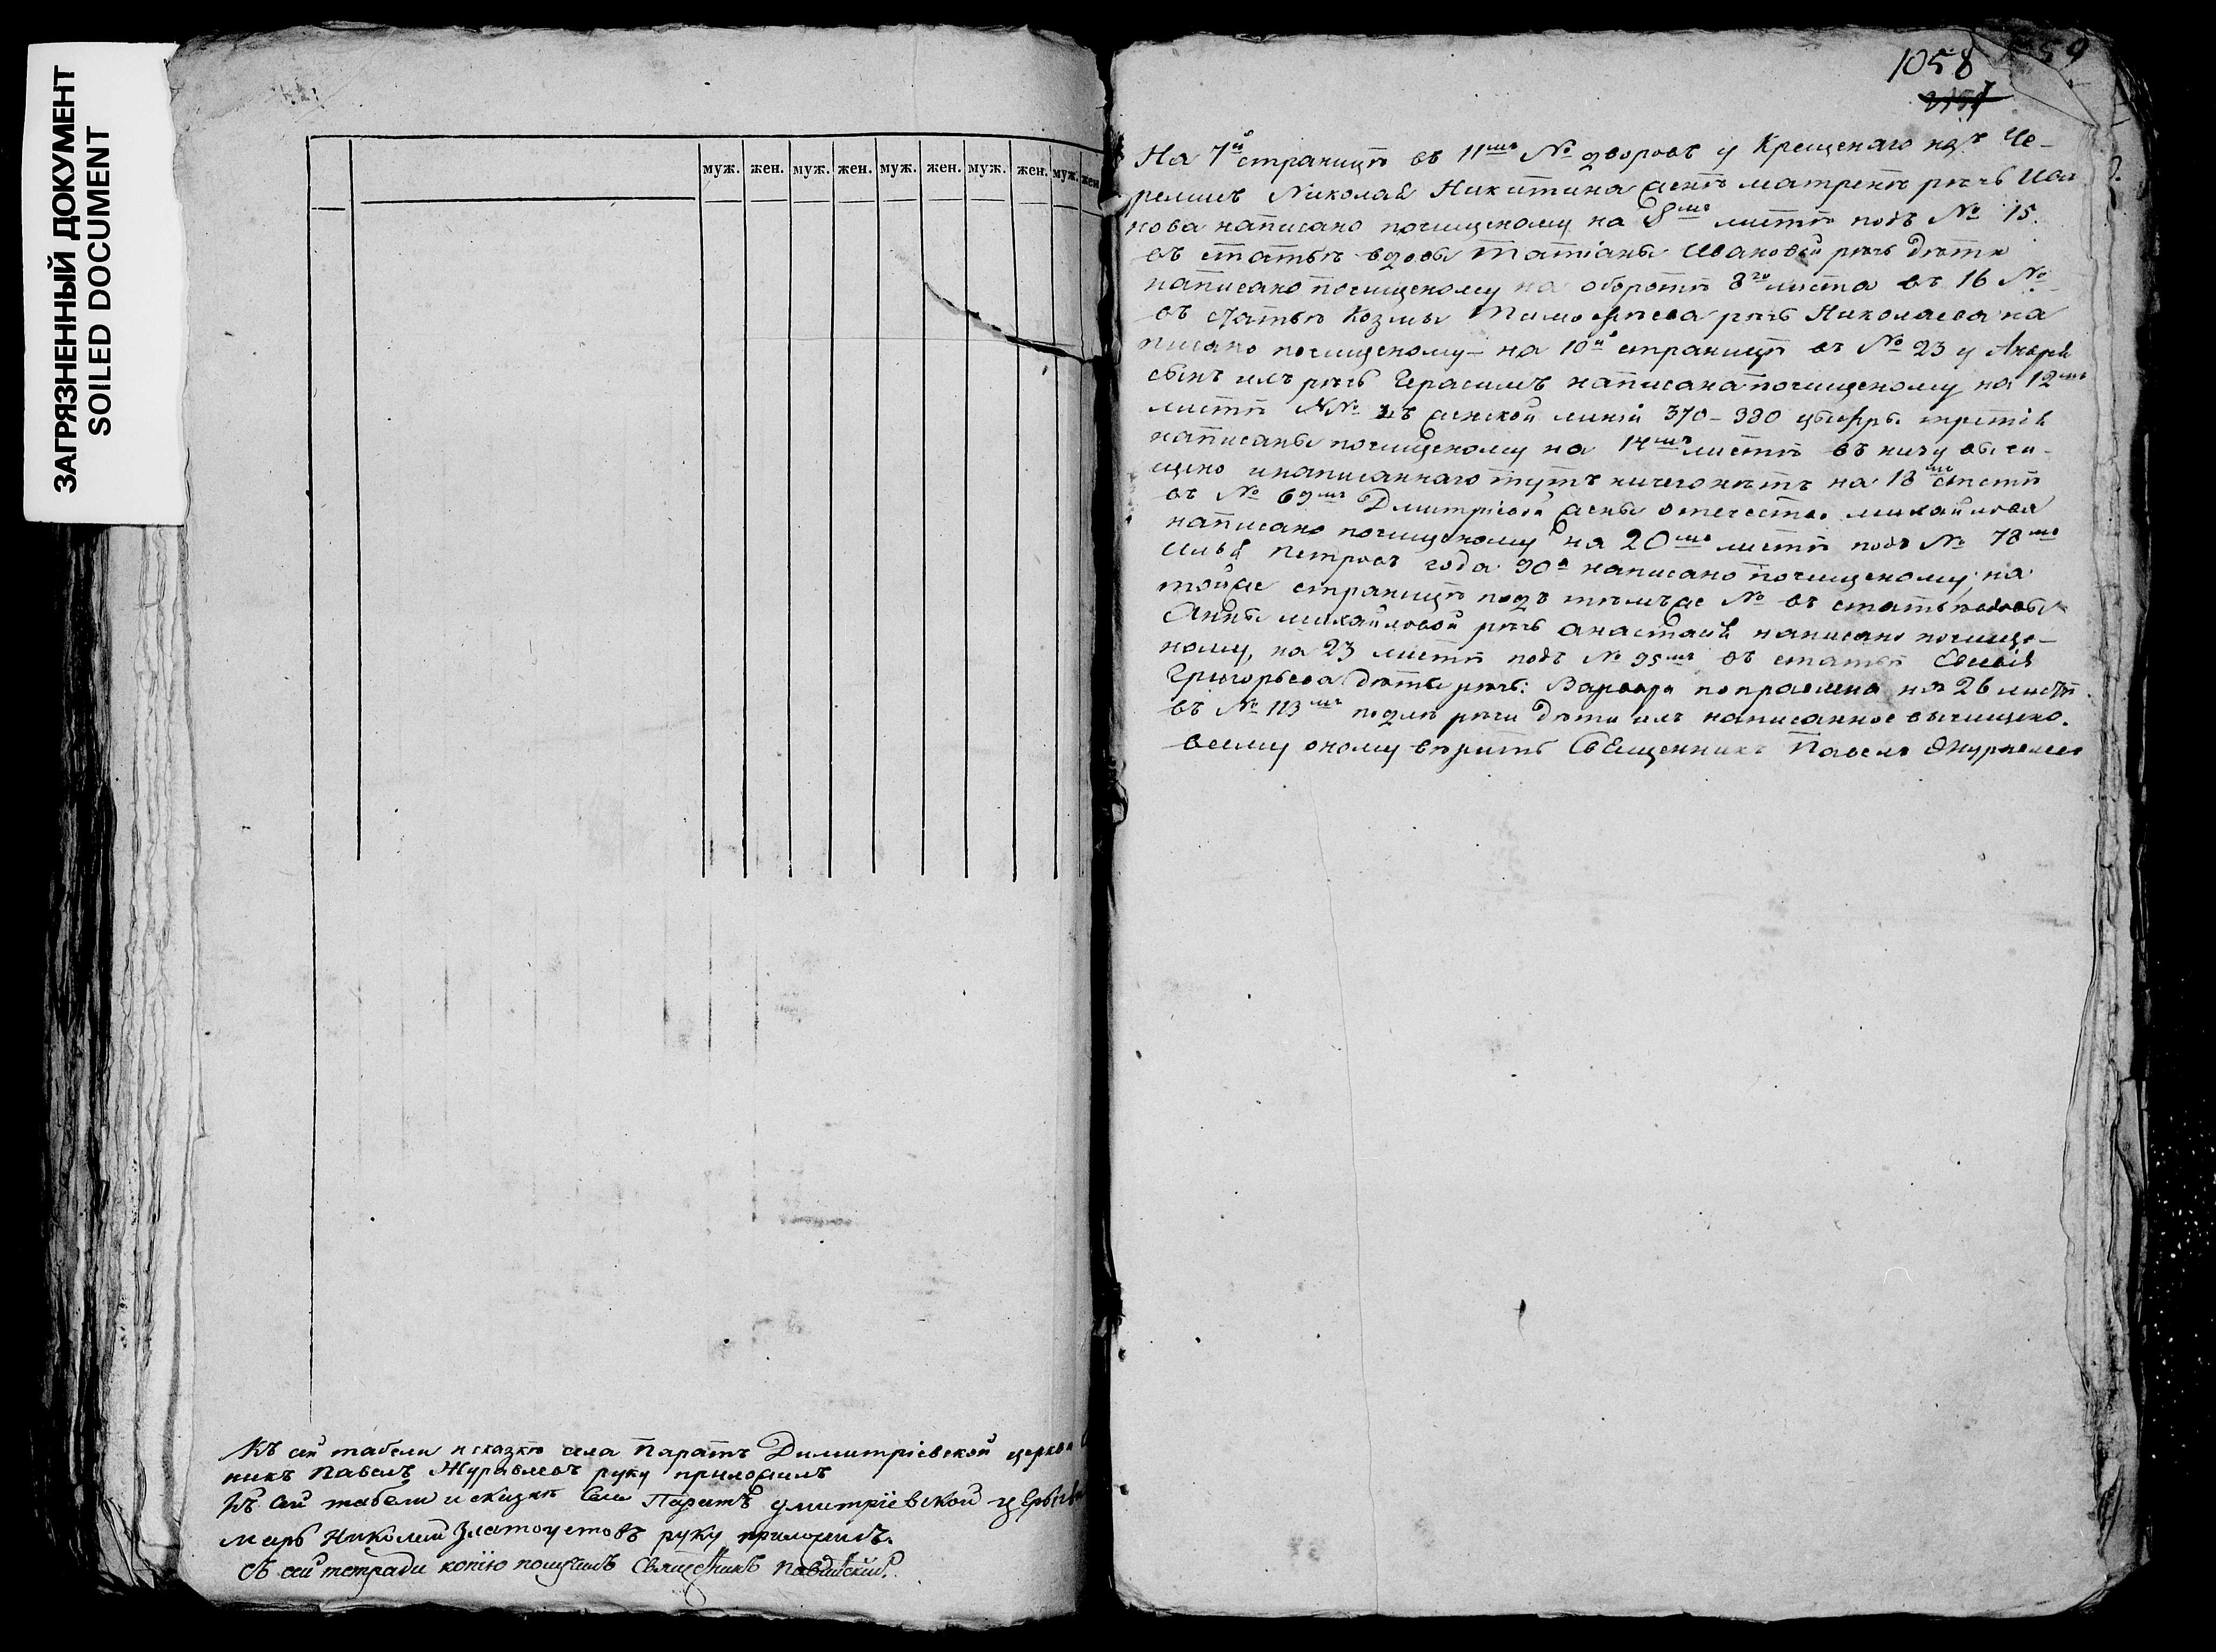 ЗАГРЯЗНЕННЫЙ ДОКУМЕНТ
SOILED DOCUMENT
муж. жен. муж. жен. муж. жен. муж. жен. муж. жен
Къ сей табели и сказкѣ села Паратъ Димитріевской церкви
никъ Павелъ Журавлевъ руку приложилъ
Къ сей табели и сказкѣ села Паратъ Дмитріевской церкви
марь Николай Златоустовъ руку приложилъ.
Съ сей тетради копію получилъ Священникъ
1058
На 7й страницѣ въ 11мъ № дворовъ у Крещенаго изъ Че-
ремисъ Николая Никитина женѣ Матренѣ рѣчь Ива
нова написано почищеному на 8мъ листѣ подъ № 15.
въ статьѣ вдовы Татіаны Ивановой рѣчь дѣти
написано почищеному на оборотѣ 8го листа въ 16 №
въ статьѣ Козмы Тимофѣева рѣчь Николаева на
писано почищеному на 10й страницѣ въ № 23 у Андрея
сынъ ихъ рѣчь Герасимъ написана почищеному на 12мъ
листѣ въ женской линіи 370 - 380 цыфры третія
написаны почищеному на 14мъ листѣ въ низу вычи-
щено и написаннаго тутъ ничего нѣтъ на 18мъ листѣ
въ № 69мъ Дмитріевой жены отечество Михайлова
написано почищеному на 20мъ листѣ подъ № 78мъ
Илья Петровъ года 90а написано почищеному, на
тойже страницѣ подъ тѣмъже № въ статьѣ вдовы
Анны Михайловой рѣчь Анастасія написано почище-
ному, на 23 листѣ подъ № 95мъ въ статьѣ
Григорьева дѣти рѣчь: Варвара поправлена на 26 листѣ.
въ № 113мъ подлѣ рѣчи дѣти ихъ написанное вычищено.
всему оному вѣрить Священникъ Павелъ Журавлевъ